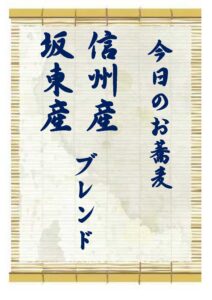 今日のお蕎麦
信州産
坂東産
ブレンド